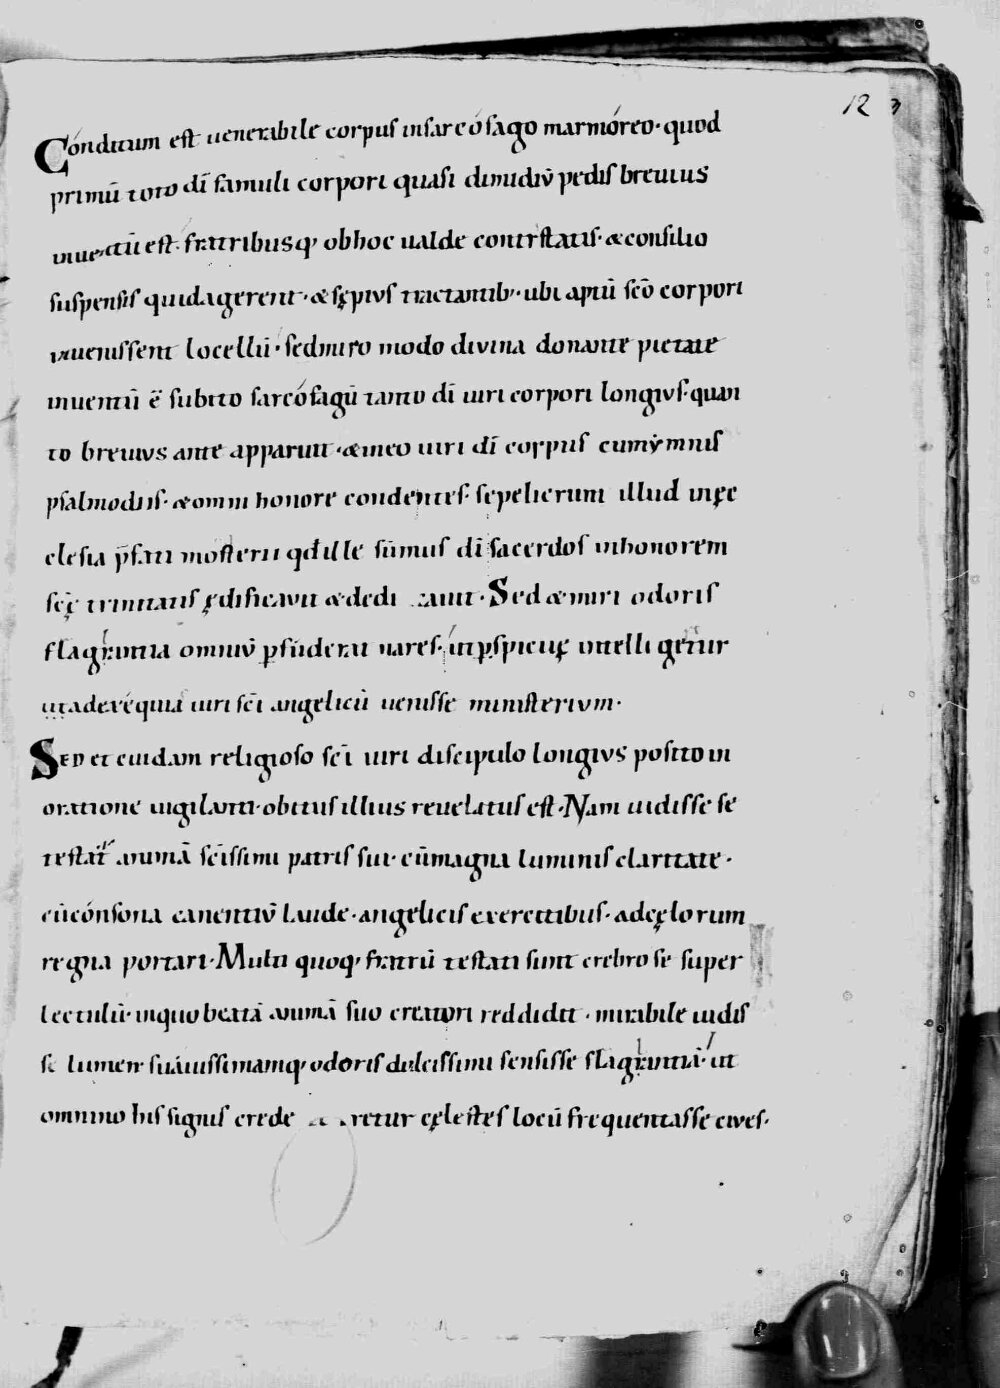 12
Cónditum est uenerabile corpus insarcófago marmóreo· quod
primū toto dī famuli corpori quasi dimidiū pedis breuius
inuentū est· fratribusq; obhoc ualde contristatis· &consilio
suspensis quidagerent· & sępius tractantib; · ubi aptū scō corpori
inuenissent locellū· sedmiro modo diuina donante pietate
inuentū ē subito sarcófagū tanto dī uiri corpori longius· quan
to breuius ante apparuit · &ineo uiri dī corpus cumẏmnis
psalmodiis· &omni honore condentes· sepelierunt illud inęc
clesia p̄fati mosterii qđ ille sūmus dī sacerdos inhonorem
scę̄ trinitatis ędificauit &dedi cauit· Sed &miri odoris
flagrantia omniū ꝑfuderat nares· inꝑspicuę intelligetur
utadexéquia uiri scī angelicū uenisse ministerium·
Sed et cuidam religioso scī uiri discipulo longius posito in
oratione uigilanti· obitus illius reuelatus est· Nam uidisse se
testat̄ animā scīssimi patris sui· cūmagna luminis claritate·
cūcónsona canentiū laude· angelicis exercitibus· adcęlorum
regna portari· Multi quoq; fratrū testati sunt crebro se super
lectulū· inquo beatā animā suo creatori reddidit · mirabile uidis
se lumen· suauissimamq; odoris dulcissimi sensisse flagrantiā· ut
omnino his signis crede retur cęlestes locū frequentasse ciues·